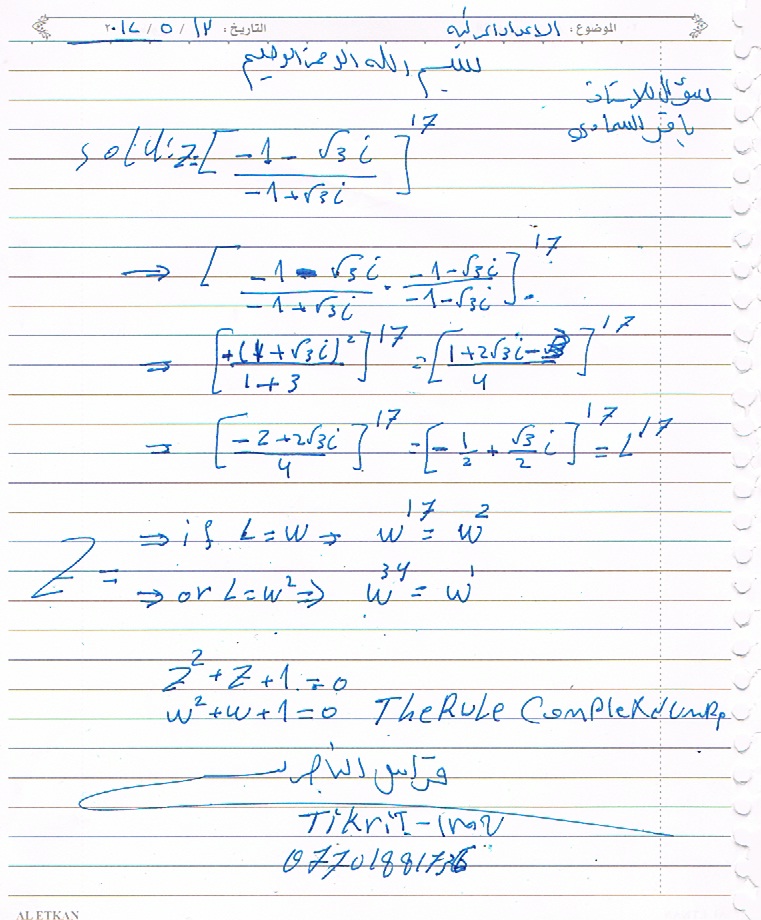 الموضوع: الاعداد المركبة التاريخ: ١٢ / ٥ / ٢٠١٤
بسم الله الرحمن الرحيم
سؤال للاستاذ
باقر السماوي
solu: z = [ (-1 - √3 i) / (-1 + √3 i) ]^17
⇒ [ (-1 - √3 i) / (-1 + √3 i) · (-1 - √3 i) / (-1 - √3 i) ]^17 .
⇒ [ +(1 + √3 i)^2 / (1 + 3) ]^17 = [ (1 + 2√3 i - 3) / 4 ]^17
⇒ [ (-2 + 2√3 i) / 4 ]^17 = [ -1/2 + √3/2 i ]^17 = L^17
Z = ⇒ if L = w ⇒ w^17 = w^2
⇒ or L = w^2 ⇒ w^34 = w^1
Z^2 + Z + 1 = 0
w^2 + w + 1 = 0 The Rule
فراس
Tikrit -
AL ETKAN